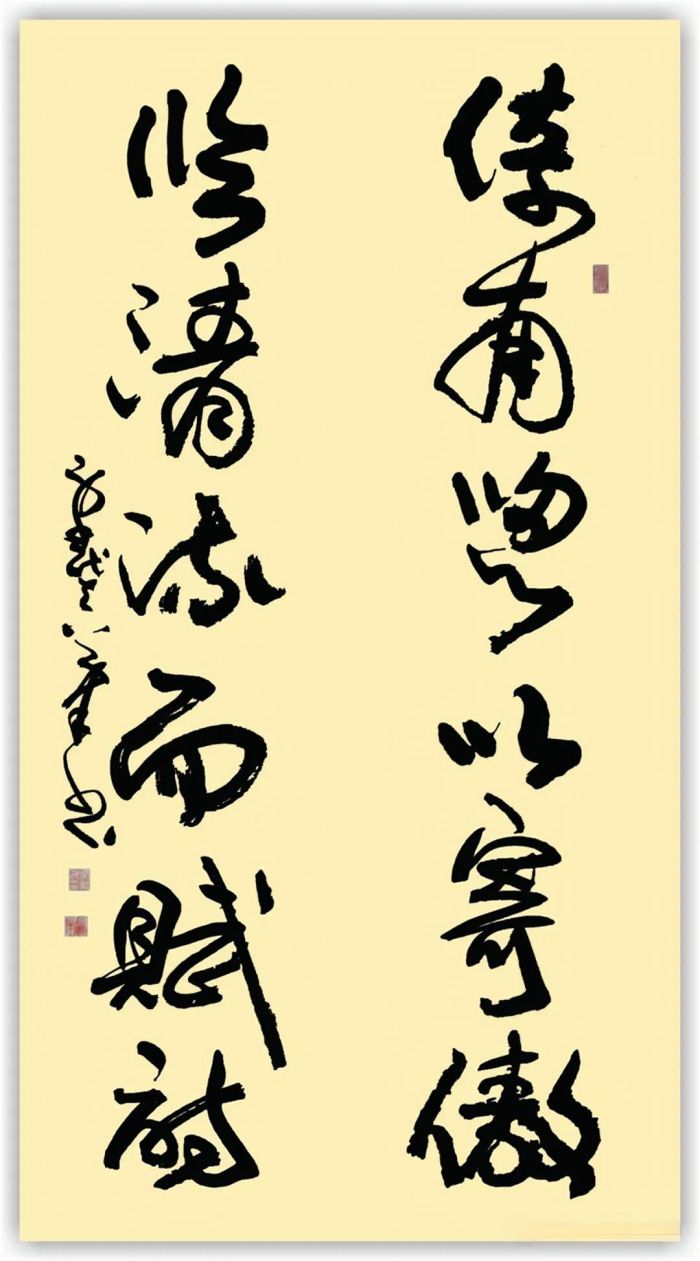 倚南窗以寄傲
临清流而赋诗